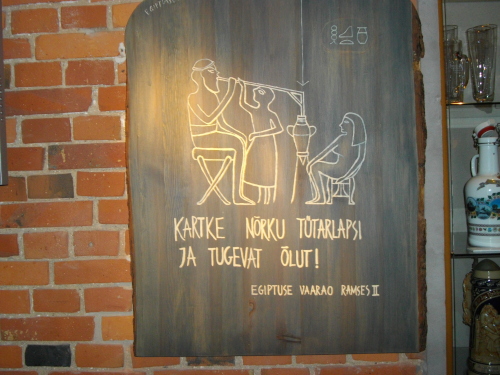 KARTKE NÕRKU TÜTARLAPSI
JA TUGEVAT ÕLUT!
EGIPTUSE VAARAO RAMSES II